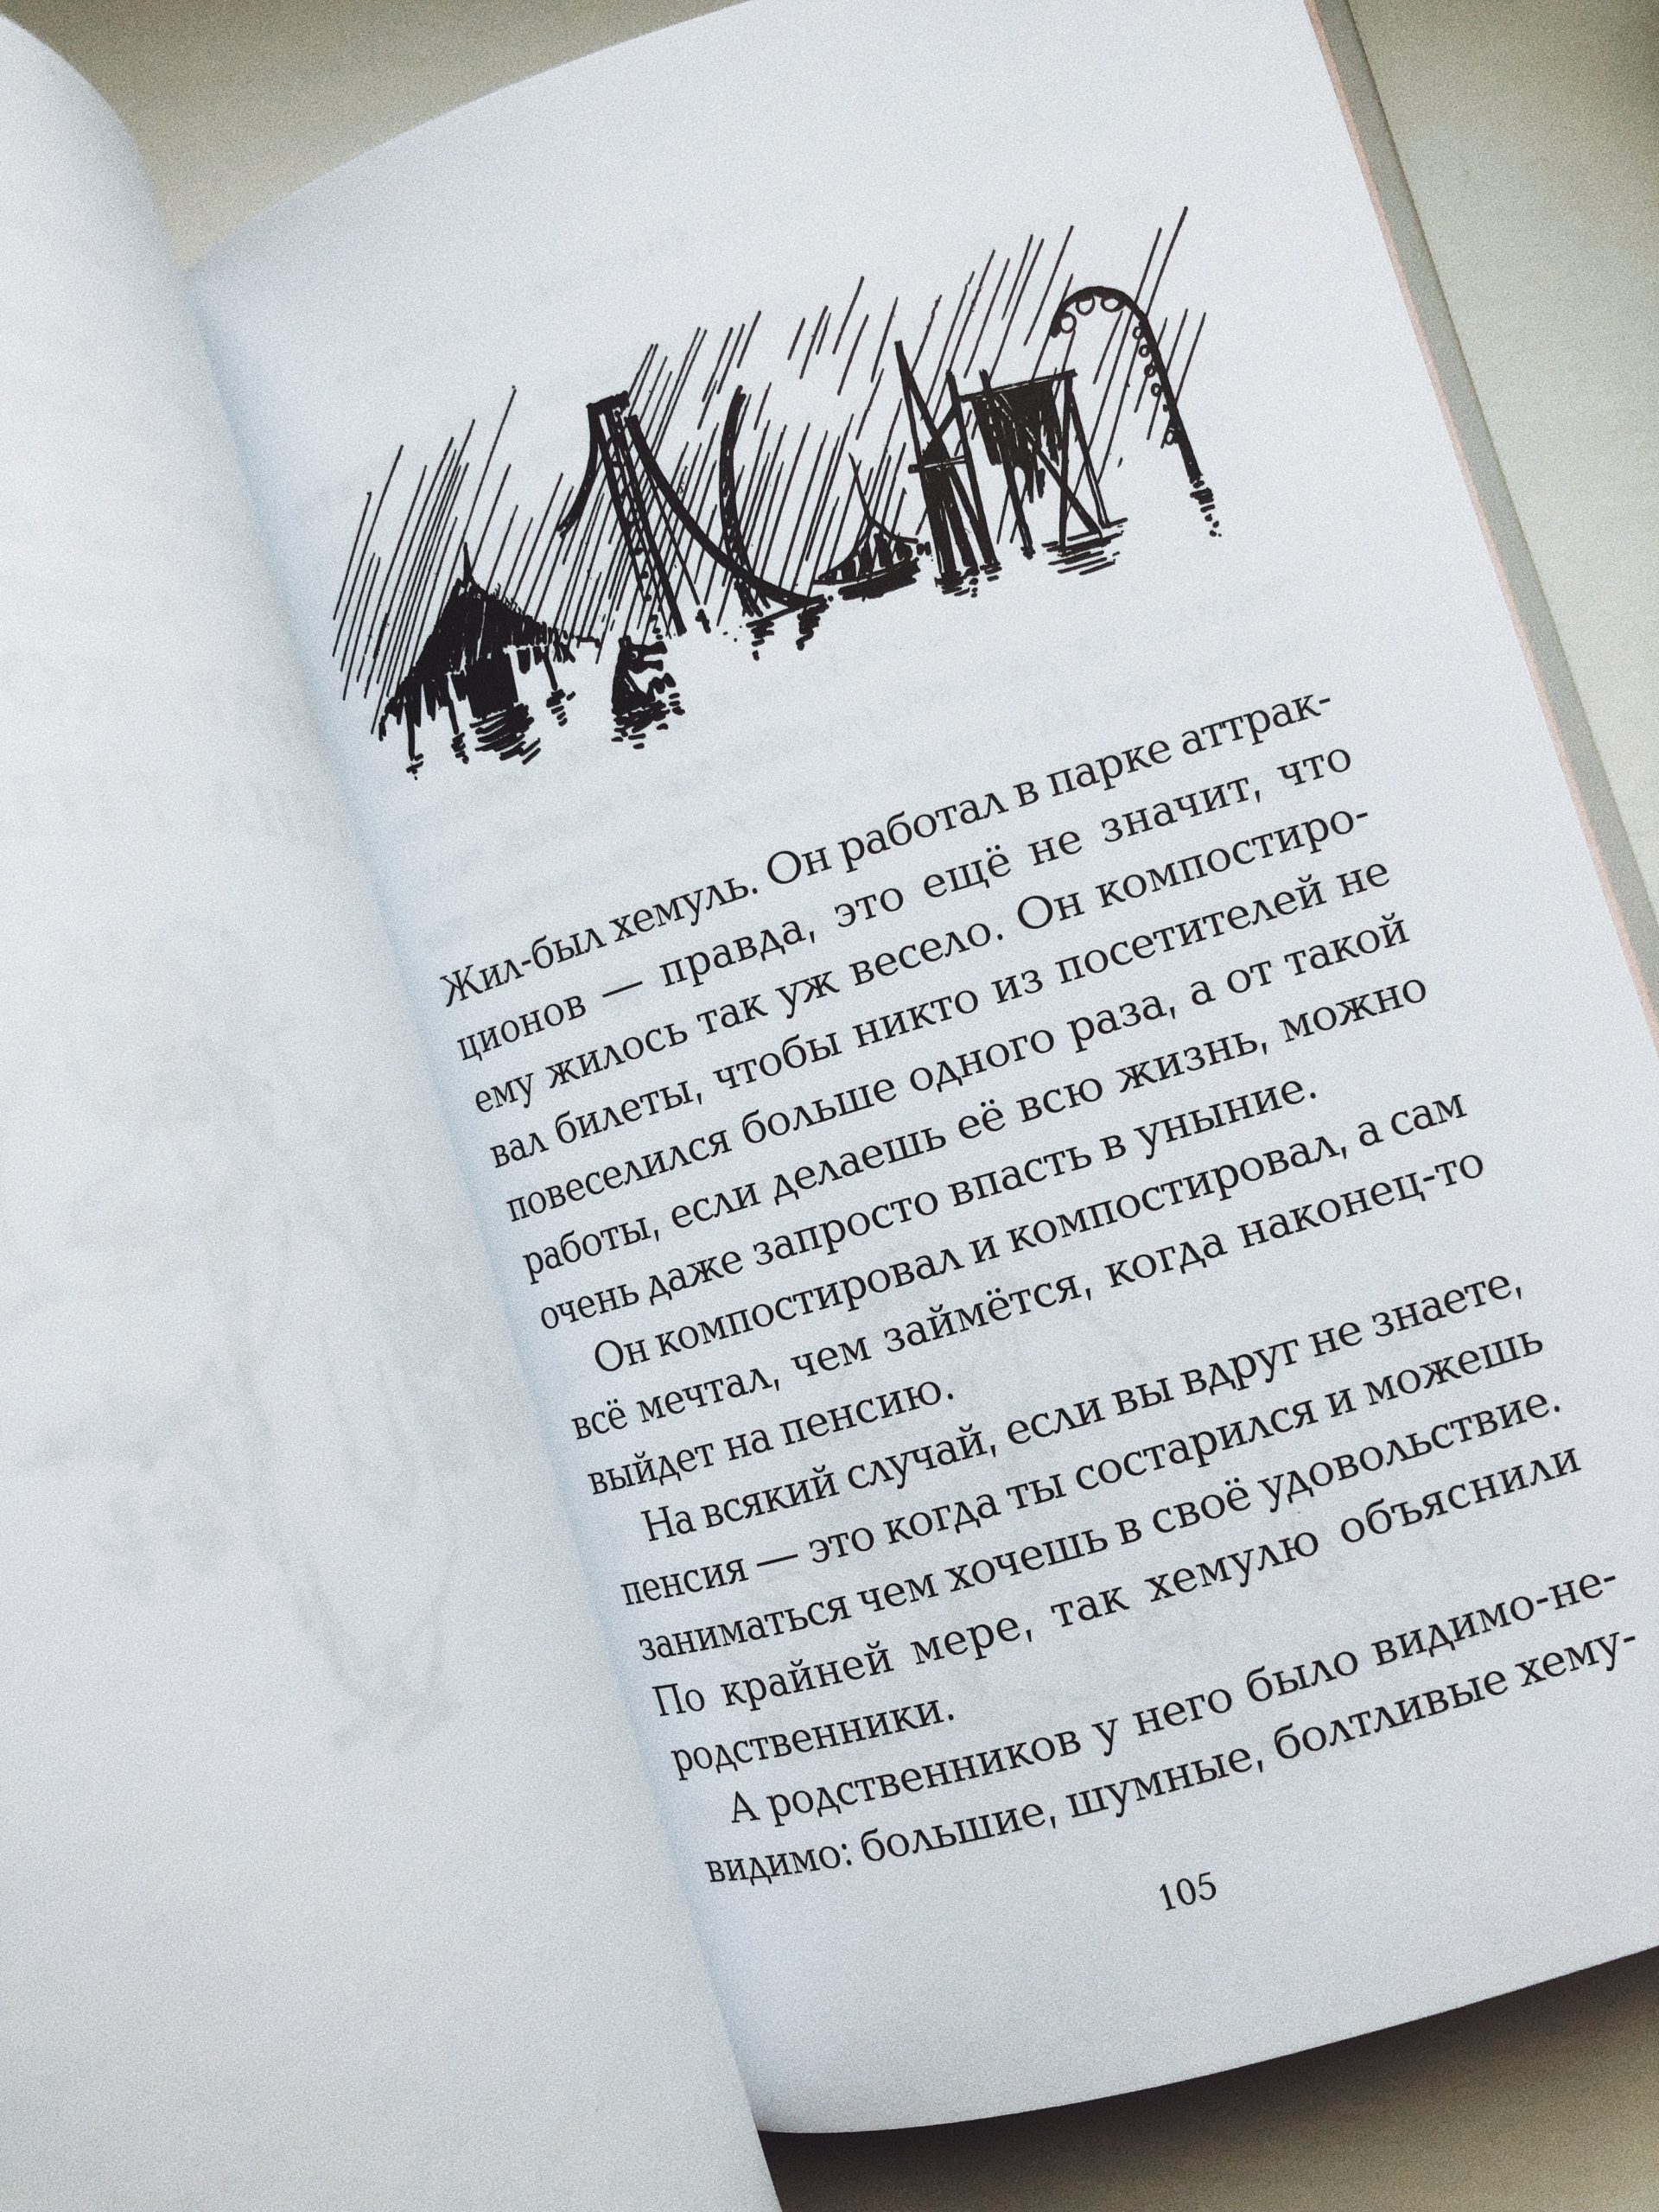 Жил-был хемуль. Он работал в парке аттрак-
ционов — правда, это ещё не значит, что
ему жилось так уж весело. Он компостиро-
вал билеты, чтобы никто из посетителей не
повеселился больше одного раза, а от такой
работы, если делаешь её всю жизнь, можно
очень даже запросто впасть в уныние.
Он компостировал и компостировал, а сам
всё мечтал, чем займётся, когда наконец-то
выйдет на пенсию.
На всякий случай, если вы вдруг не знаете,
пенсия — это когда ты состарился и можешь
заниматься чем хочешь в своё удовольствие.
По крайней мере, так хемулю объяснили
родственники.
А родственников у него было видимо-не-
видимо: большие, шумные, болтливые хему-
105